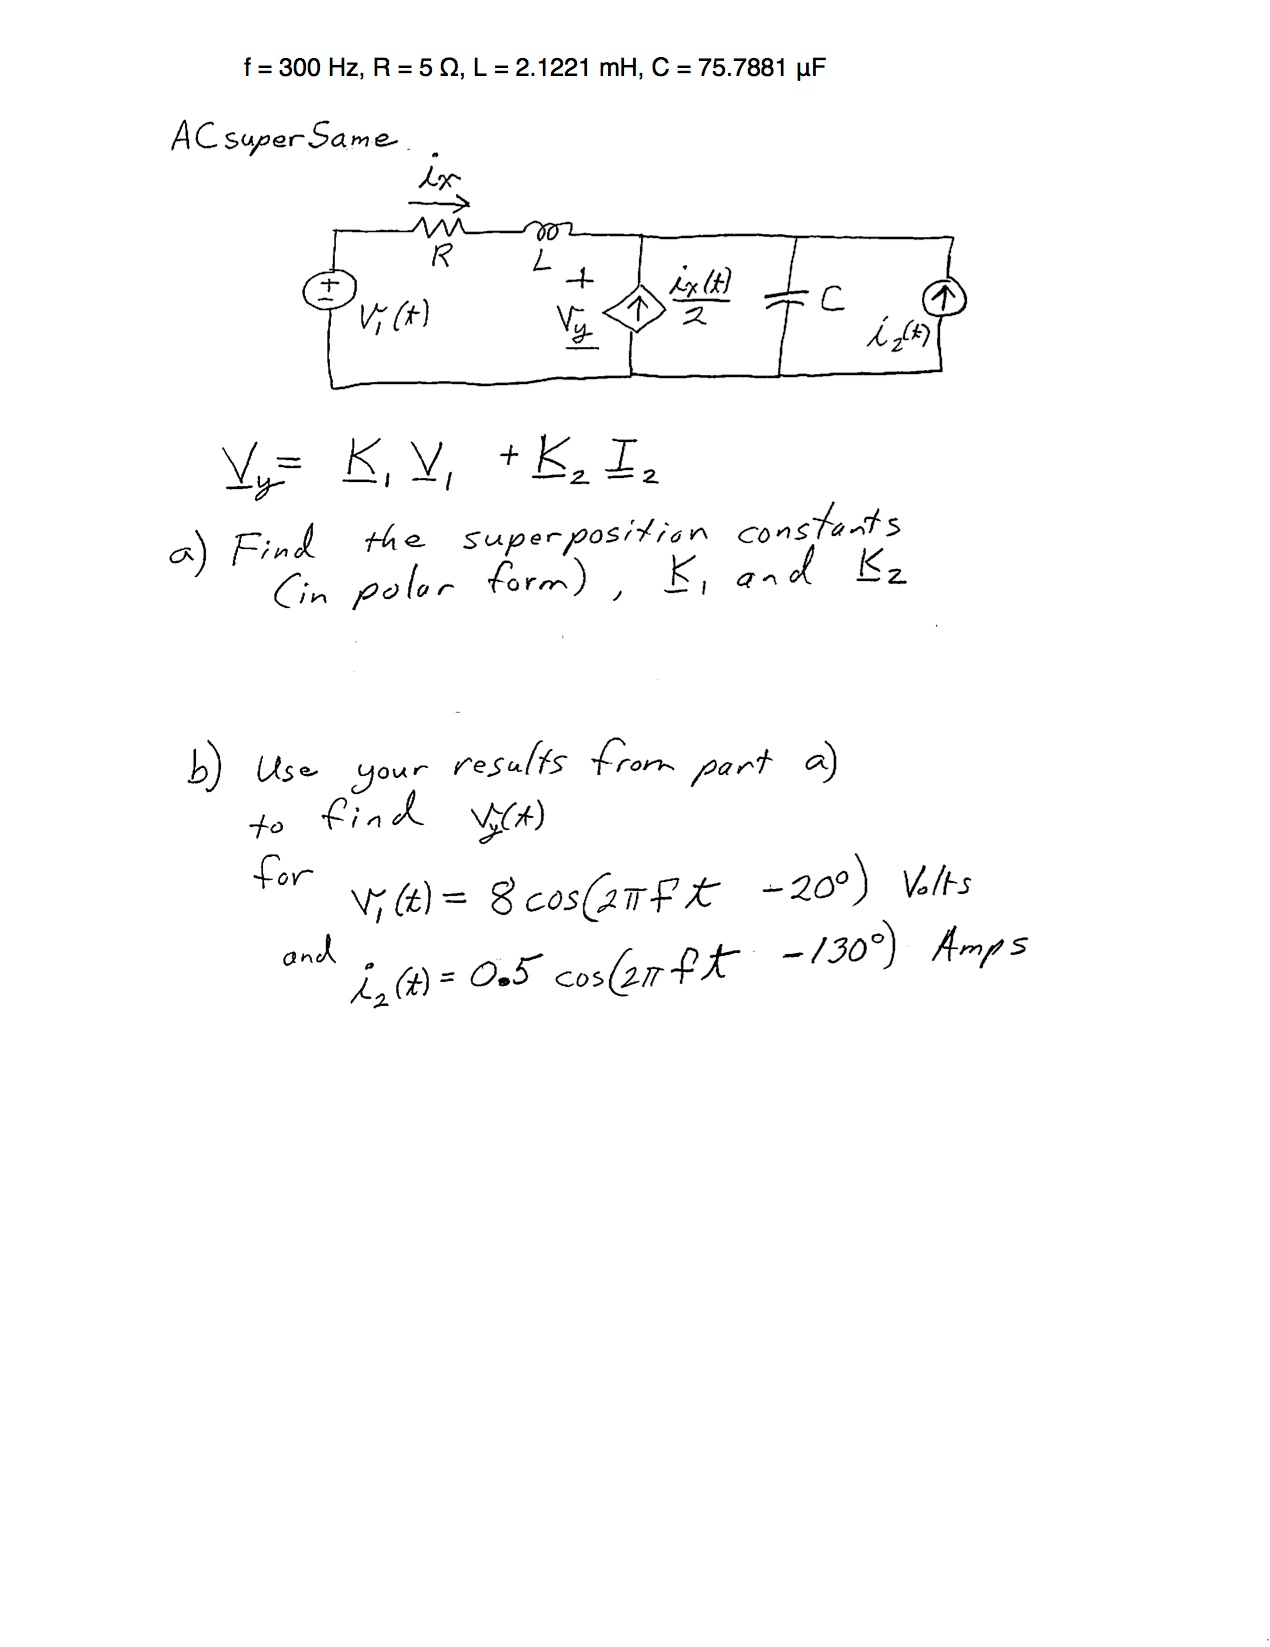 f = 300 Hz, R = 5 Ω, L = 2.1221 mH, C = 75.7881 µF
AC super Same
ix
R
L
+
-
V₁(t)
+
Vy
-
ix(t)/2
C
i₂(t)
Vy = K₁ V₁ + K₂ I₂
a) Find the superposition constants
(in polar form), K₁ and K₂
b) Use your results from part a)
to find Vy(t)
for
V₁(t) = 8 cos(2πft - 20°) Volts
and
i₂(t) = 0.5 cos(2πft - 130°) Amps